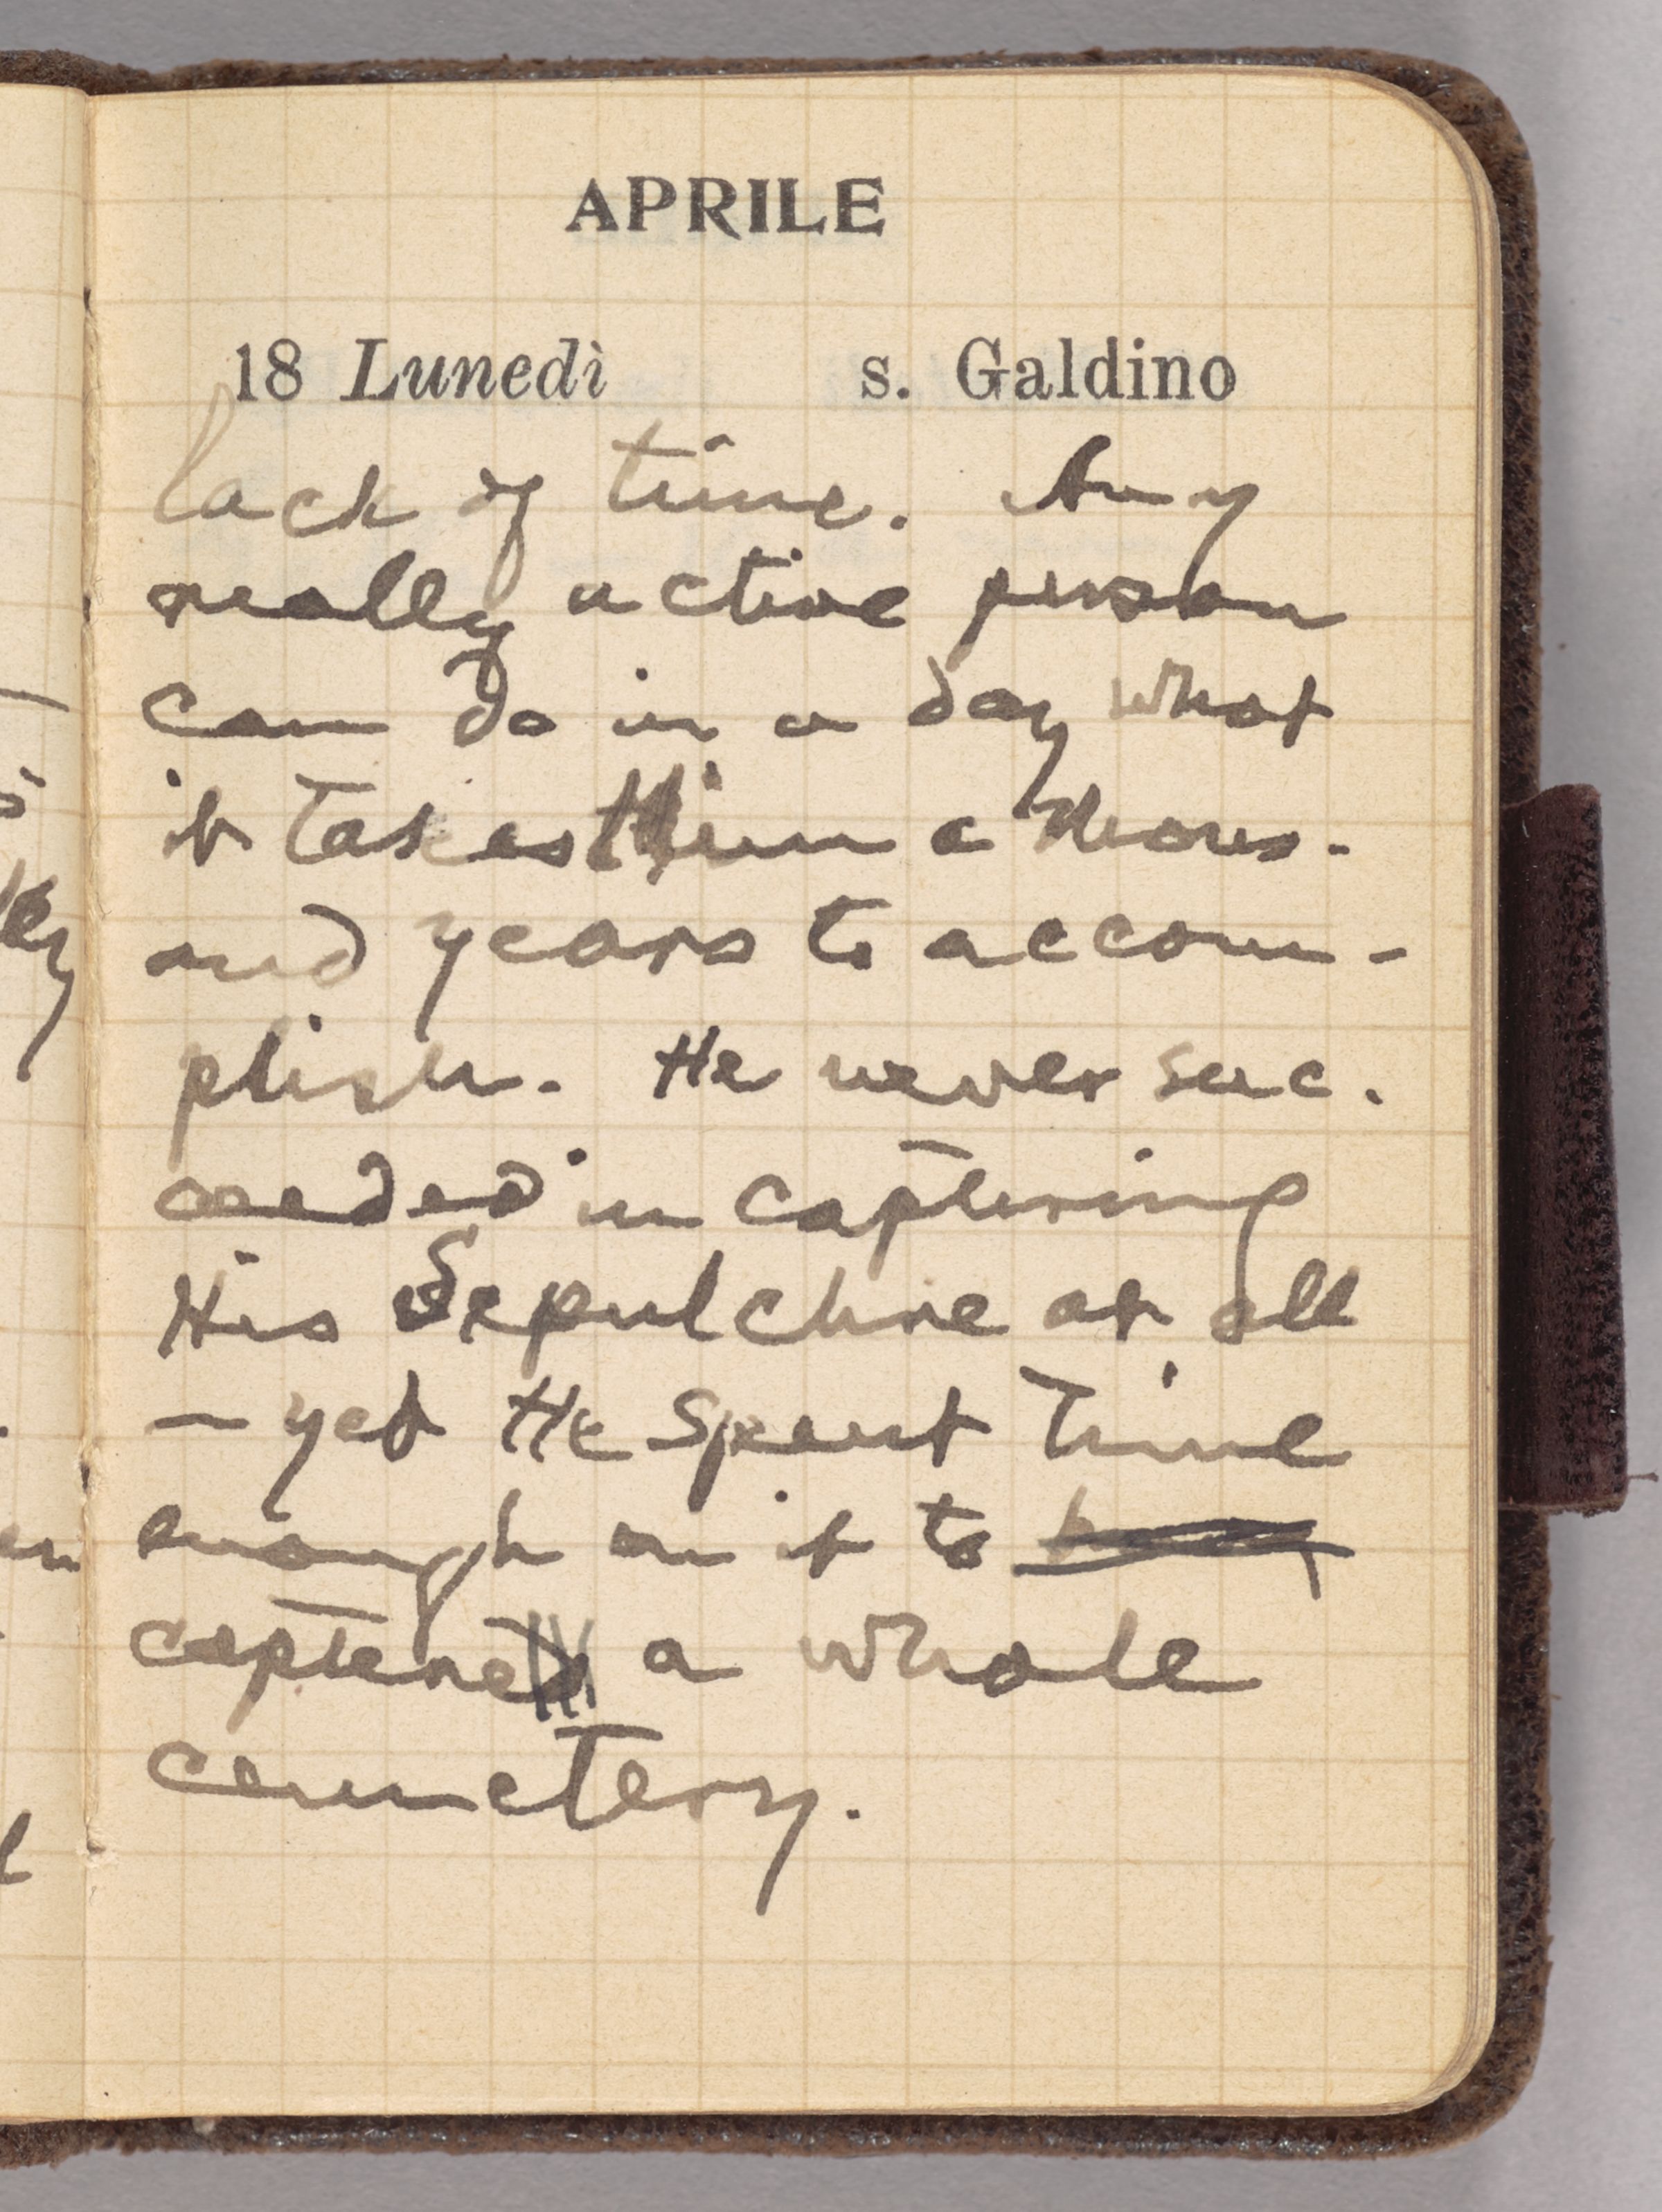 APRILE
18 Lunedì s. Galdino
lack of time. Any
really active person
can do in a day what
it takes Him a thous-
and years to accom-
plish. He never suc-
ceeded in capturing
His Sepulchre at all
— yet He spent time
enough on it to
capture a whole
cemetery.